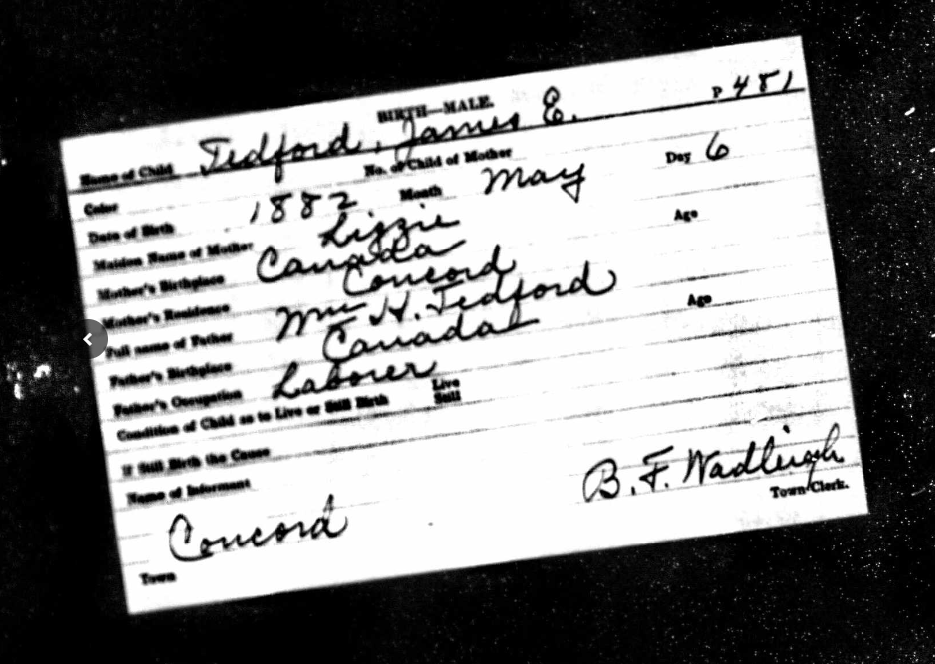 BIRTH—MALE. P 481
Name of Child Tedford, James E.
Color No. of Child of Mother
Date of Birth 1882 Month May Day 6
Maiden Name of Mother Lizzie
Mother's Birthplace Canada Age
Mother's Residence Concord
Full name of Father Wm H. Tedford
Father's Birthplace Canada Age
Father's Occupation Laborer
Condition of Child as to Live or Still Birth Live Still
If Still Birth the Cause
Name of Informant
Concord B. F. Wadleigh
Town Town Clerk.